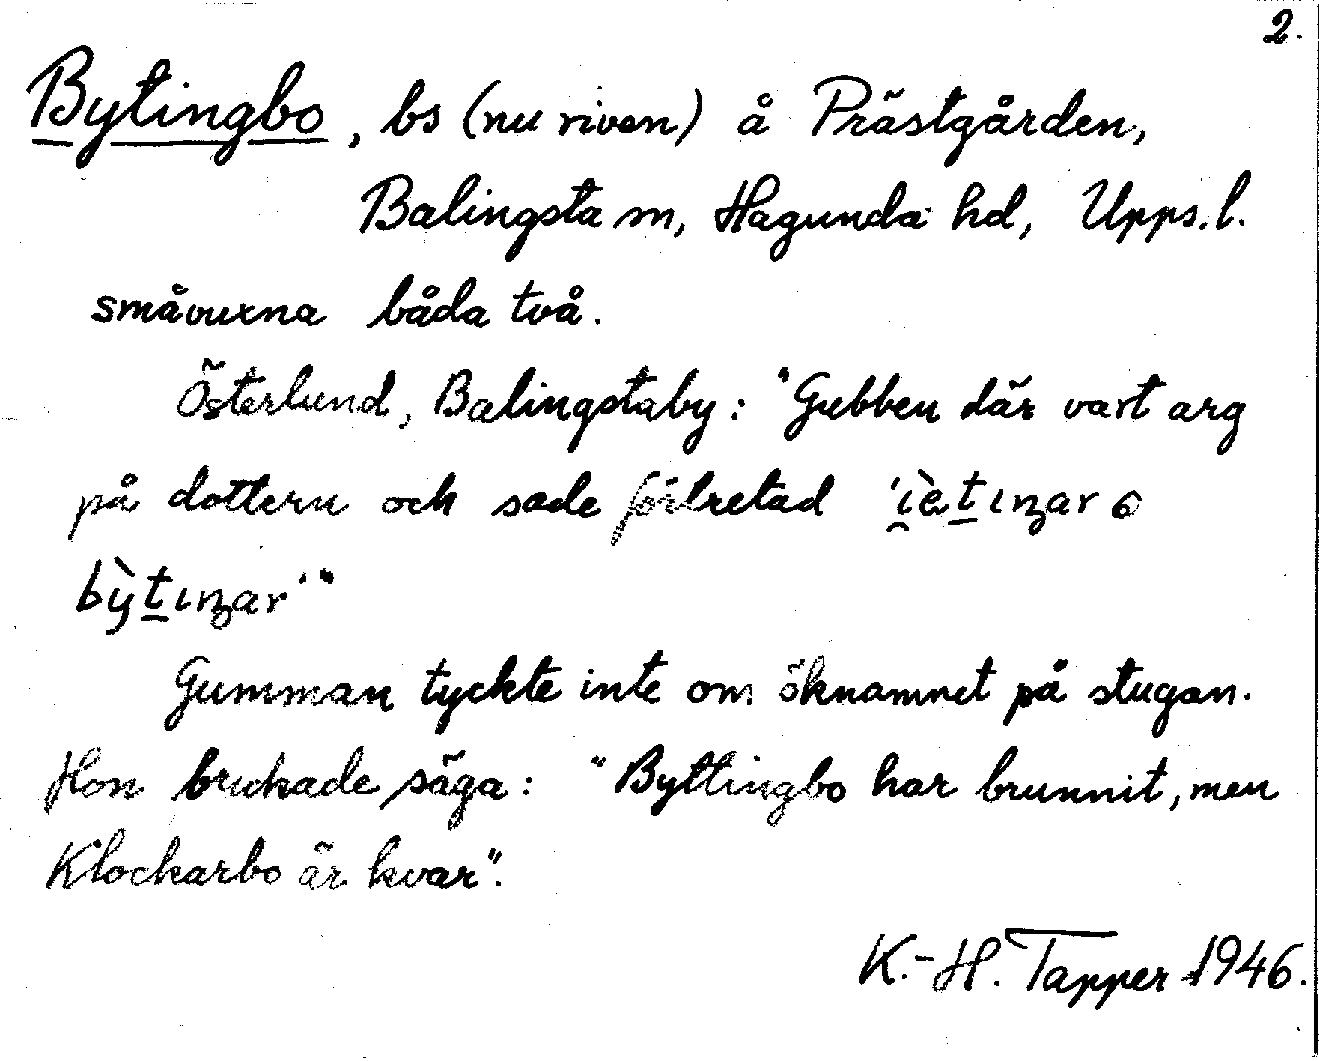 2.
Bytingbo, bs (nu riven) å Prästgården,
Balingsta sn, Hagunda hd, Upps. l.
småvuxna båda två.
Österlund, Balingstaby: "Gubben där vart arg
på dottern och sade förtretad 'i̯èt̠ıŋar ɷ
bỳt̠ıŋar'"
Gumman tyckte inte om öknamnet på stugan.
Hon brukade säga: "Byttingbo har brunnit, men
Klockarbo är kvar".
K.-H. Tapper 1946.